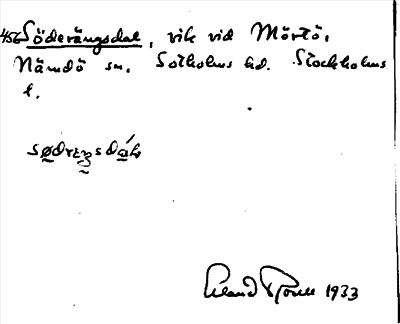 456 Söderängsdal, vik vid Mörtö,
Nämdö sn. Sotholms hd. Stockholms
l.
Erland Rosell 1933